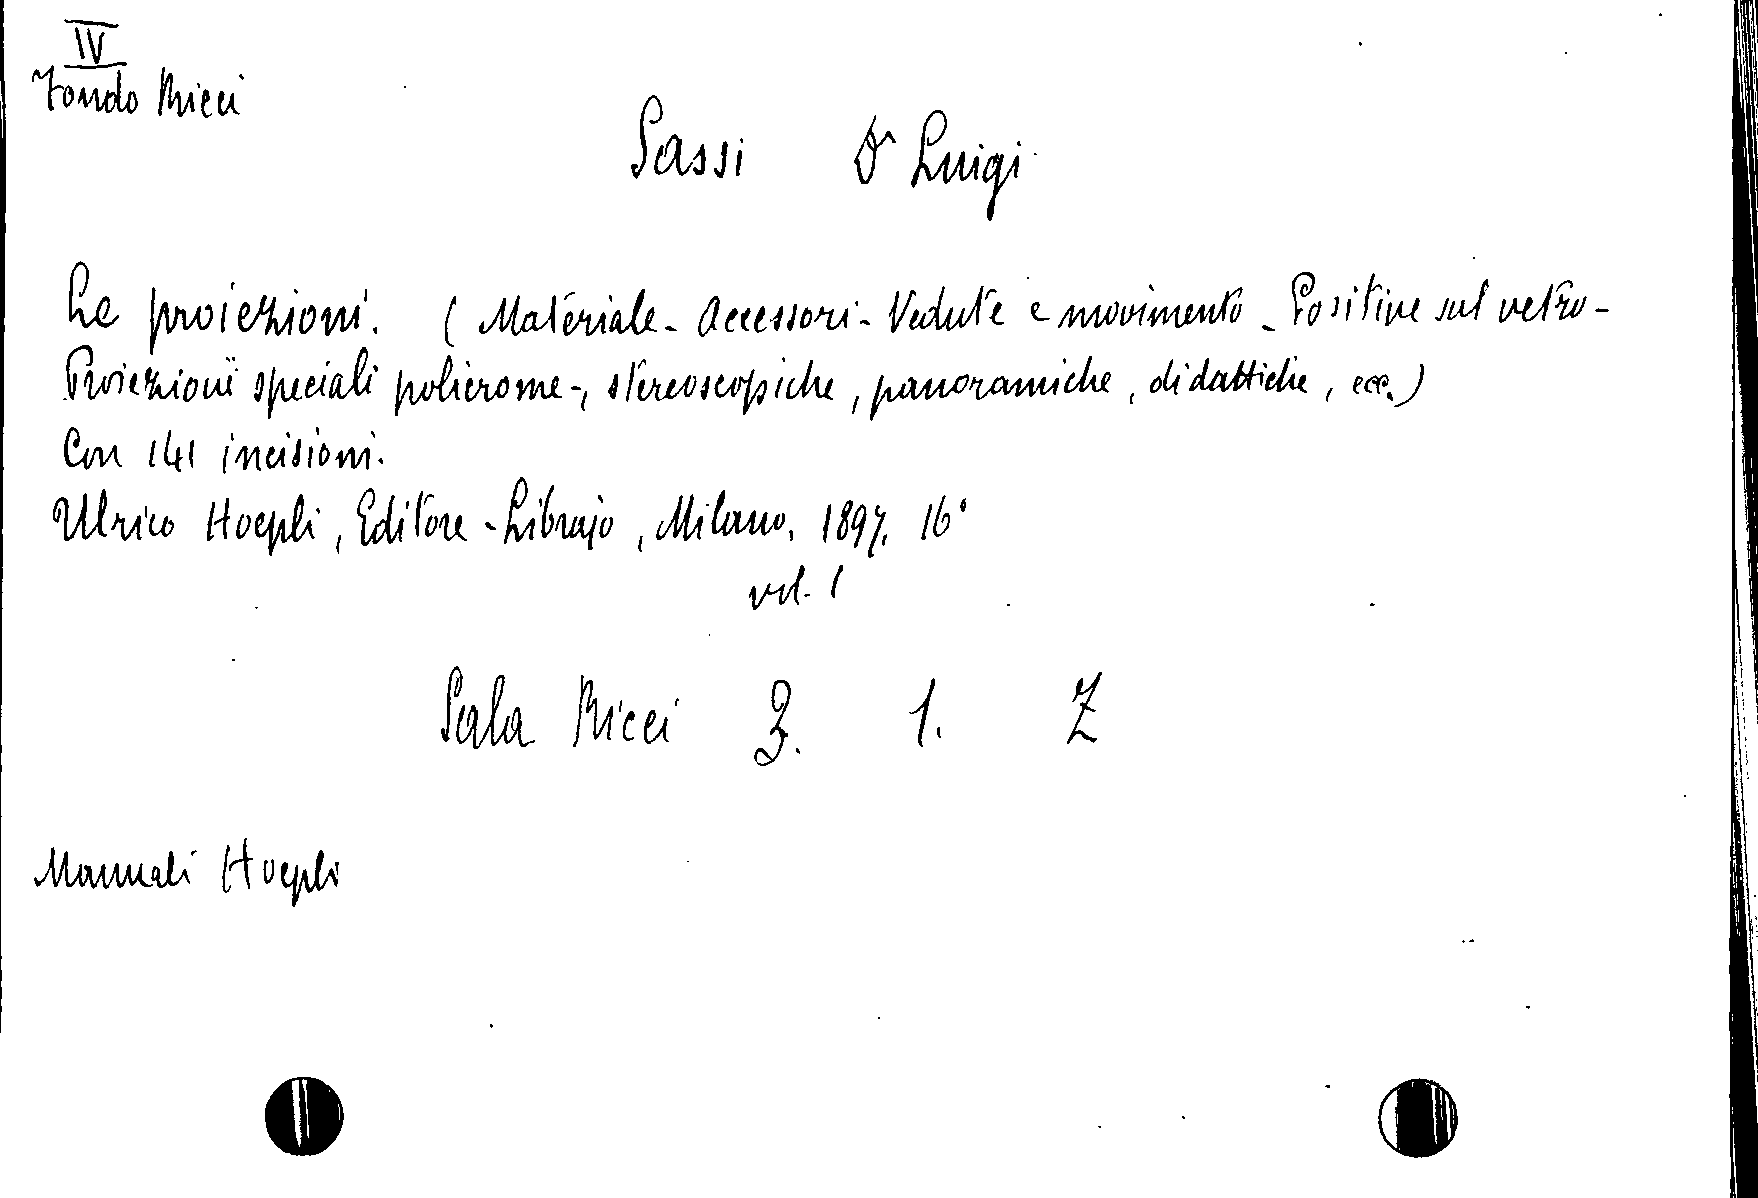 IV
Fondo Ricci
Sassi Dr Luigi
Le proiezioni. (Materiale - Accessori - Vedute e movimento - Positive sul vetro -
Proiezioni speciali policrome -, stereoscopiche, panoramiche, didattiche, ecc.)
Con 141 incisioni.
Ulrico Hoepli, Editore - Librajo, Milano, 1897. 16°
vol. 1
Sala Ricci 3. 1. Z
Manuali Hoepli